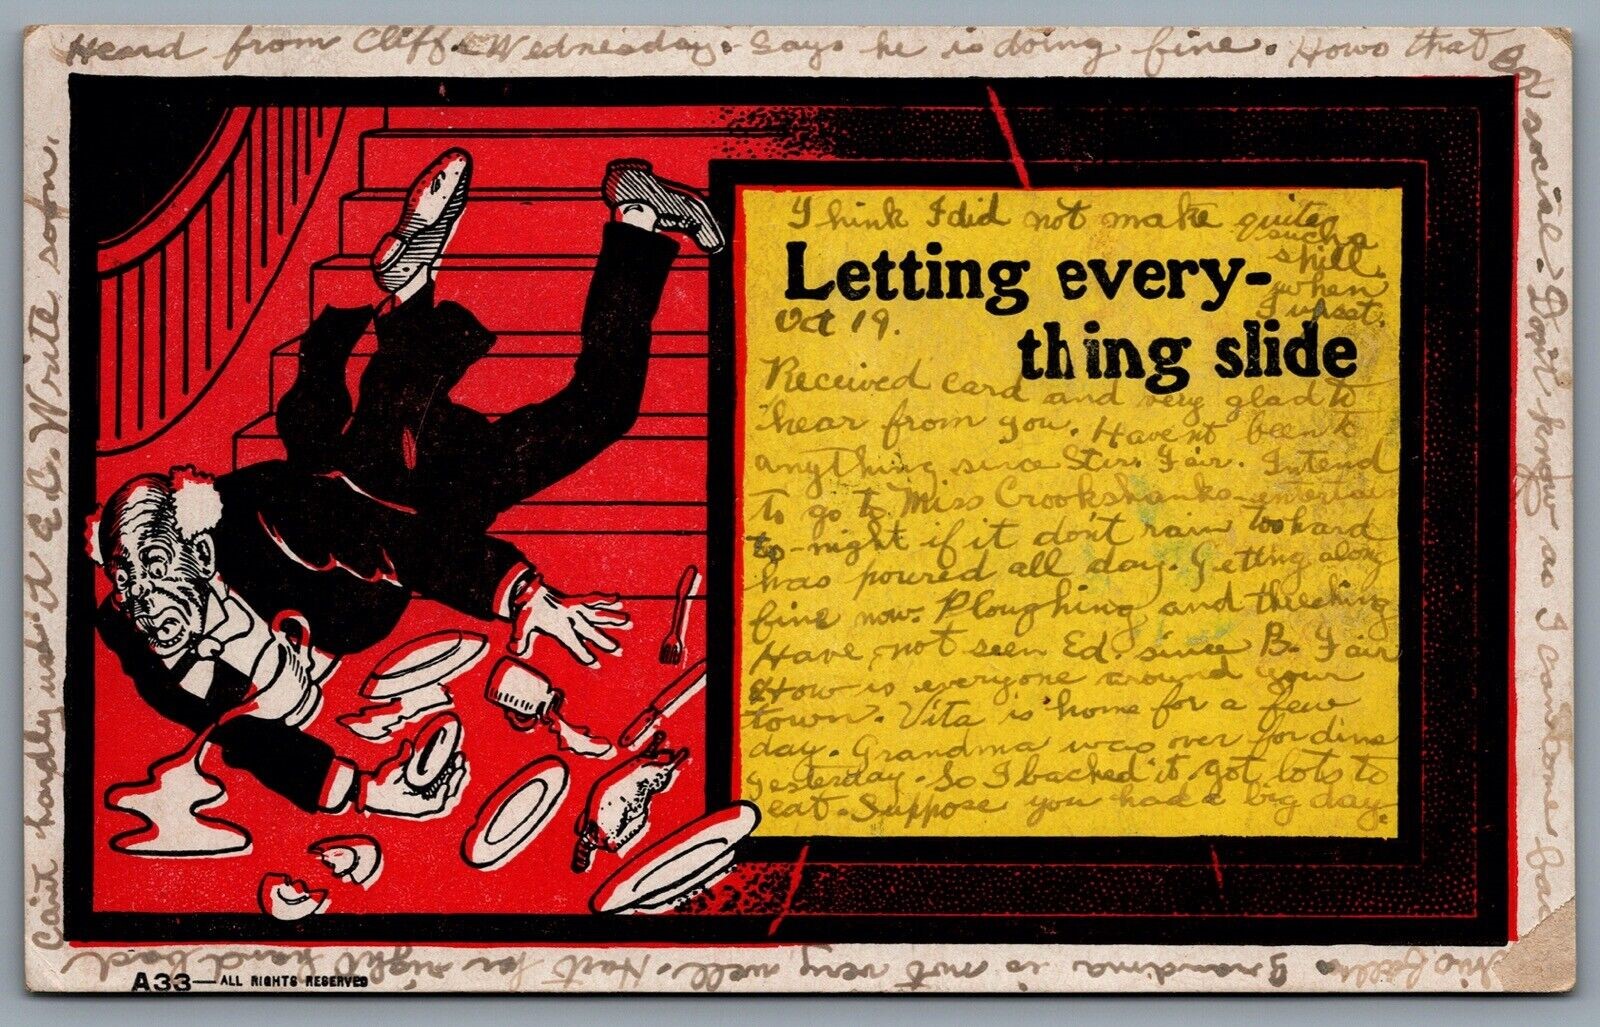 Heard from Cliff Wednesday. Says he is doing fine. Hows that
Box social. Don't know as I can come
this fall. Grandma is not very well. Hurt her right hand bad
Can't hardly use it E.C. Write soon.
I think I did not make quite
such a
spill
when
I upset.
Letting every-
thing slide
Oct 19.
Received card and very glad to
hear from you. Have n't been to
anything since Ster. Fair. Intend
to go to Miss Crookshanks entertain
to-night if it don't rain too hard
has poured all day. Getting along
fine now. Ploughing and threshing
Have not seen Ed. since B. Fair
How is everyone around your
town. Vita is home for a few
day. Grandma was over for dinn
yesterday. So I backed it got lots to
eat. Suppose you had a big day.
A33—ALL RIGHTS RESERVED